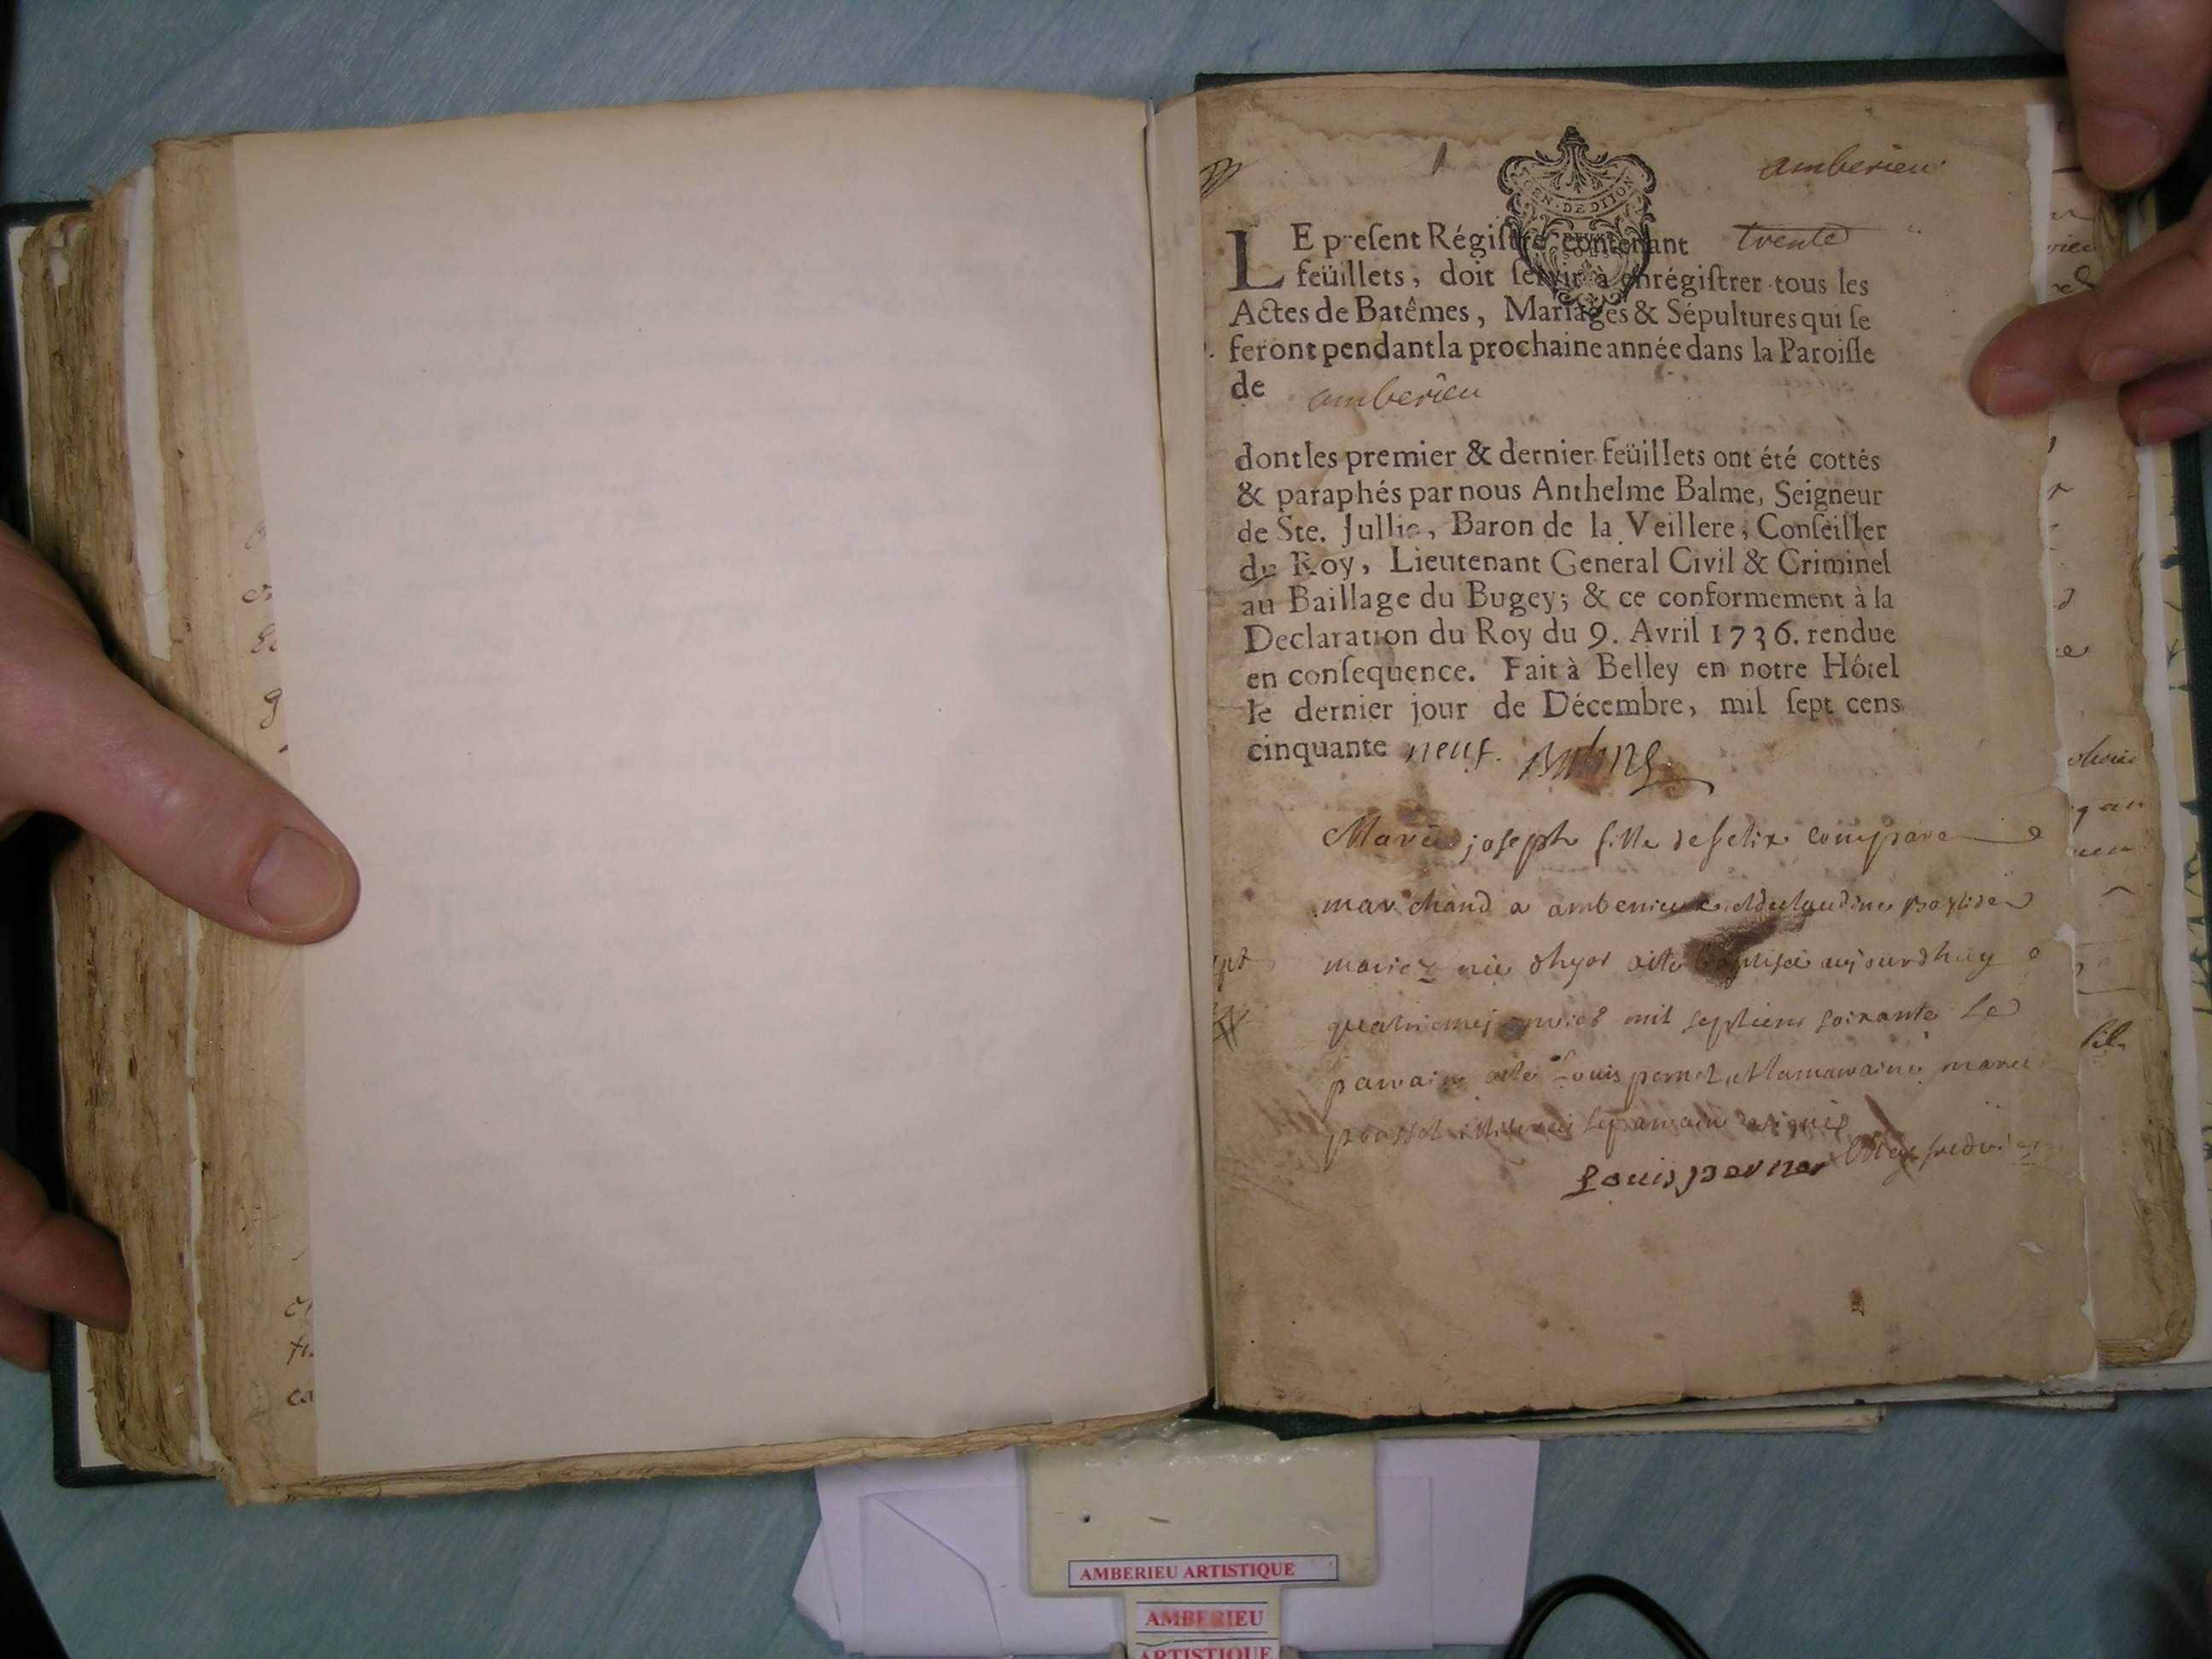 1
amberieu
GEN · DE DIJON
LE present Régistre contenant trente
feüillets, doit servir à enrégistrer tous les
Actes de Batêmes, Mariages & Sépultures qui se
feront pendant la prochaine année dans la Paroisse
de amberieu
dont les premier & dernier feüillets ont été cottés
& paraphés par nous Anthelme Balme, Seigneur
de Ste. Jullie, Baron de la Veillere, Conseiller
du Roy, Lieutenant General Civil & Criminel
au Baillage du Bugey; & ce conformement à la
Declaration du Roy du 9. Avril 1736. rendue
en consequence. Fait à Belley en notre Hôtel
le dernier jour de Décembre, mil sept cens
cinquante neuf. Balme
Marie joseph fille de felix compare
marchand a amberieux et de claudine
mariez née d'hyer a été baptisée aujourdhuy
quatrieme janvier mil sept cens soixante Le
parrain a été Louis pernet et la marraine marie
le parrain a signé
Louis perner
AMBERIEU ARTISTIQUE
AMBERIEU
ARTISTIQUE